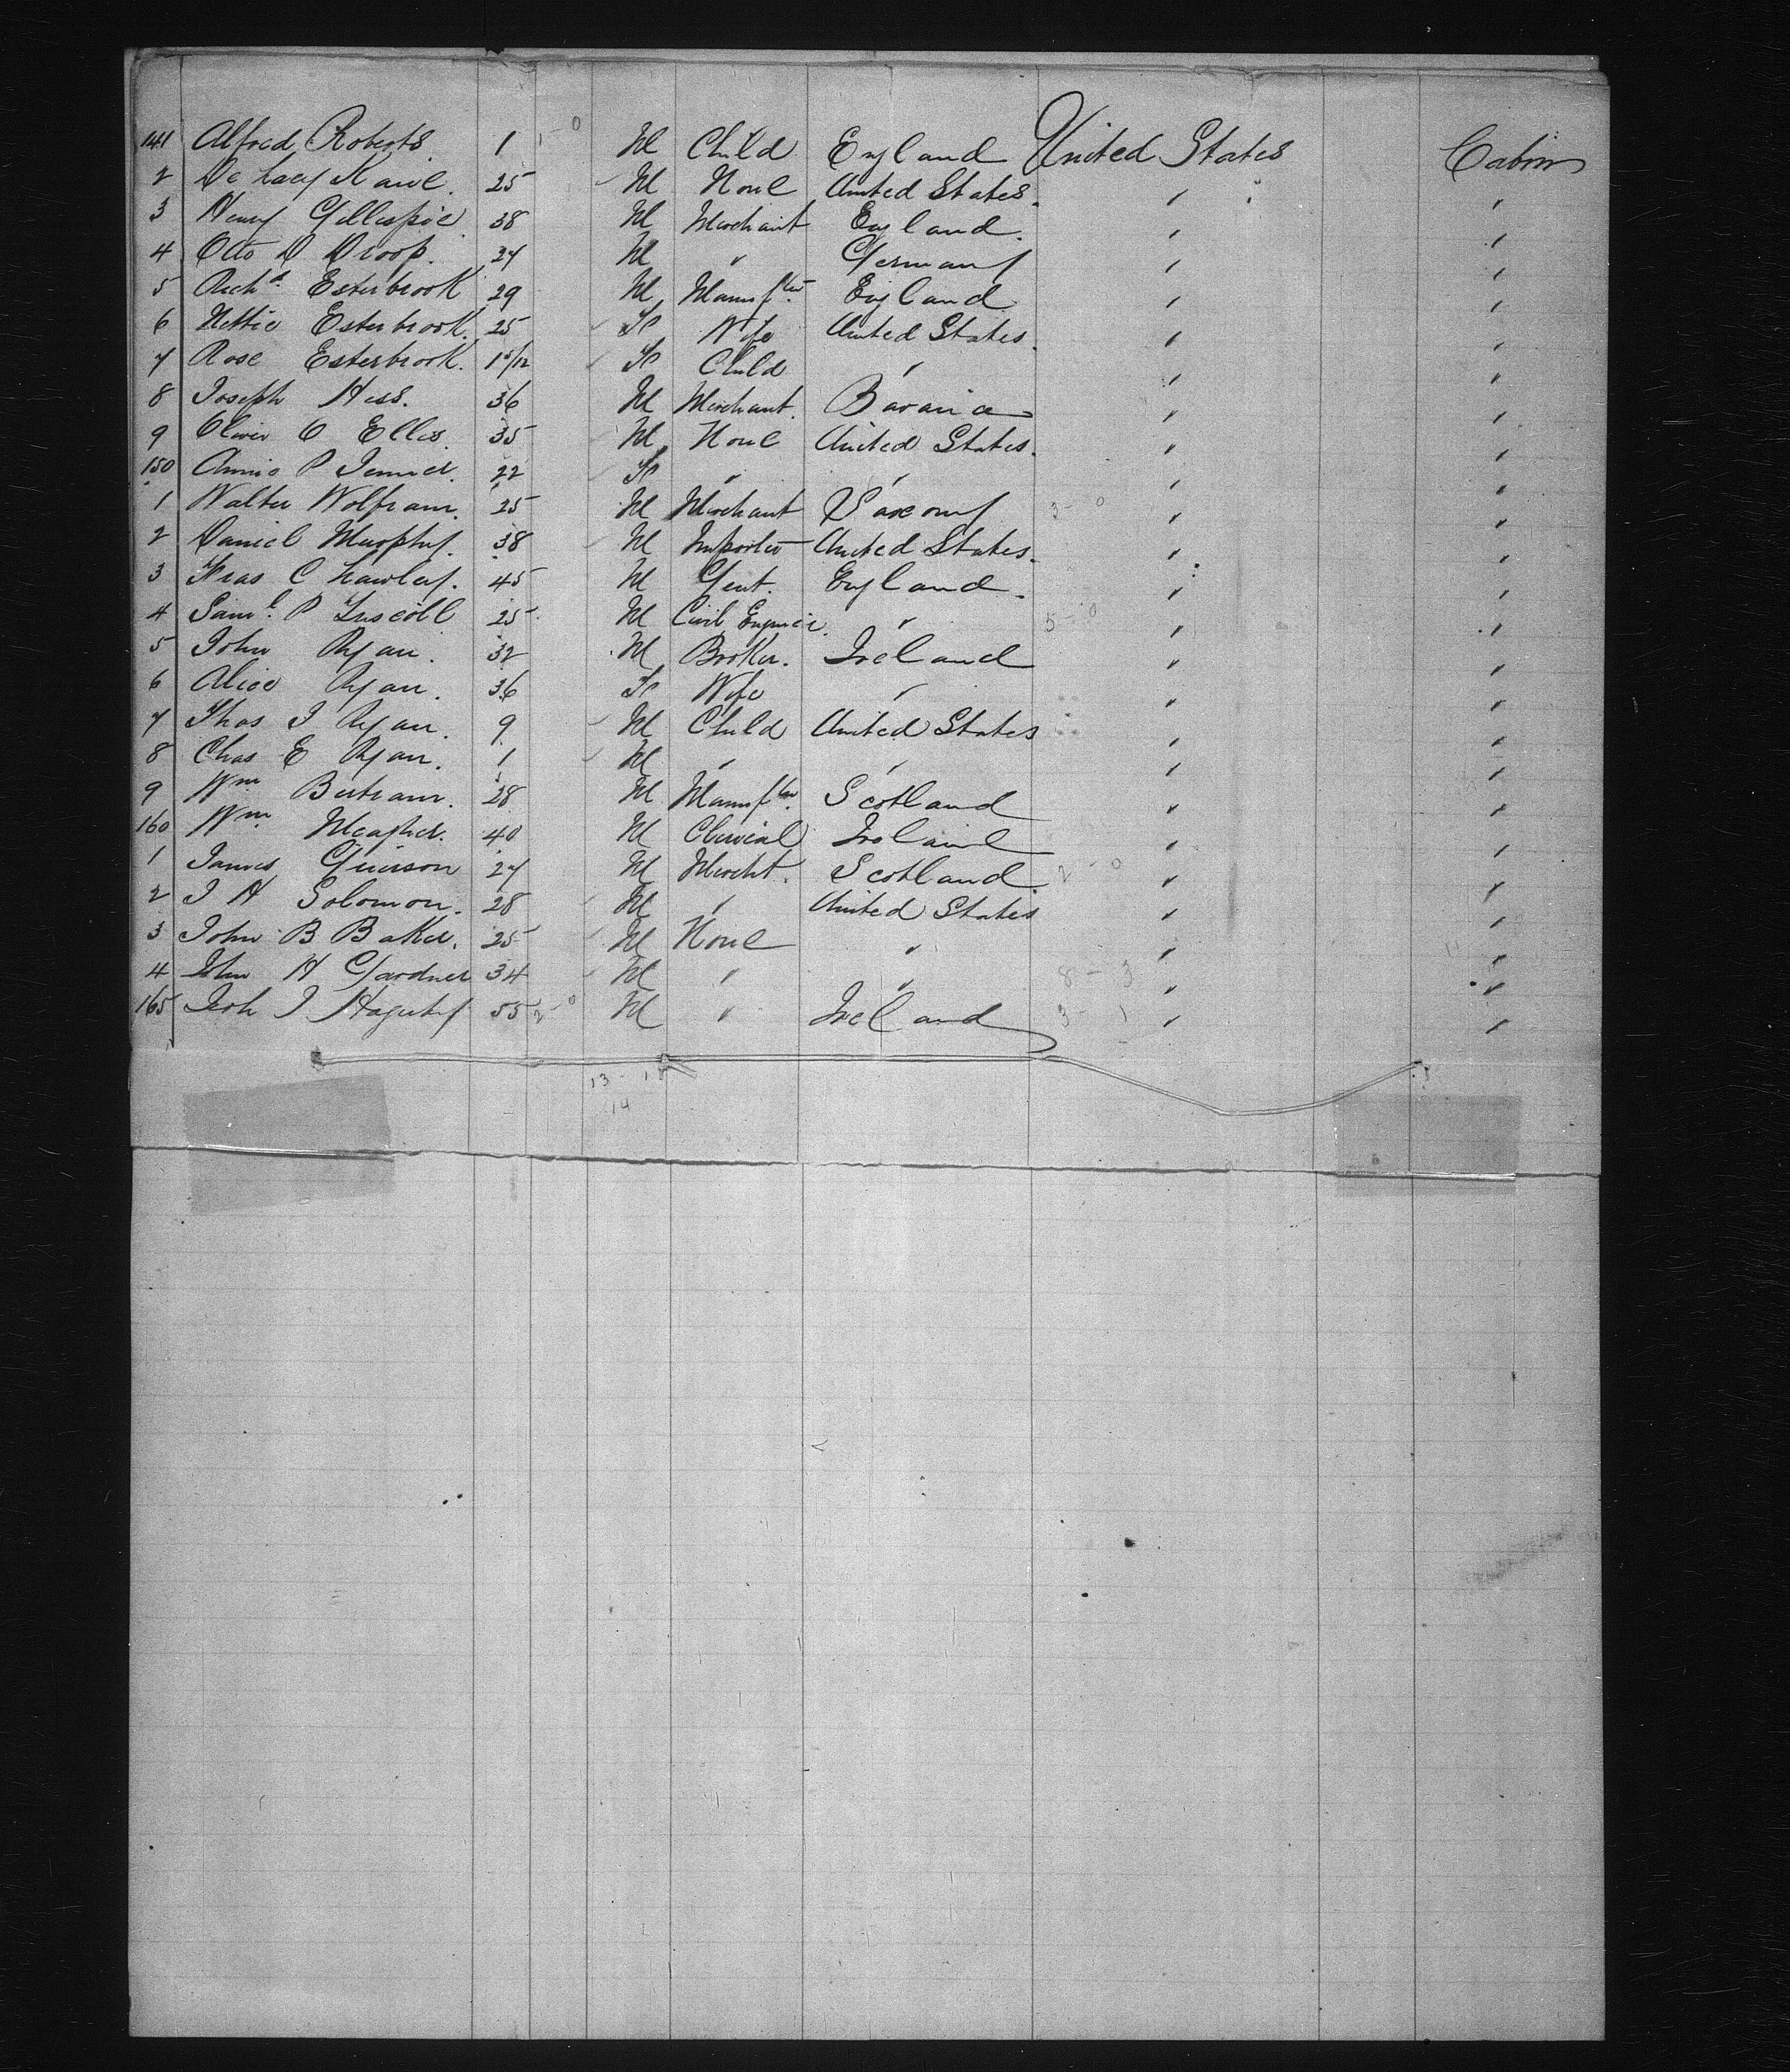 141 Alfred Roberts 1 M Child England United States Cabin
2 De Lacy Kane. 25 M None United States. " "
3 Henry Gillespie 38 M Merchant England. " "
4 Otto D Droop. 24 M " Germany " "
5 Richd Esterbrook 29 M Manufter England " "
6 Nettie Esterbrook. 25 F Wife United States. " "
7 Rose Esterbrook. F Child " " "
8 Joseph Hess. 36 M Merchant. Bavaria " "
9 Oliver O Ellis. 35 M None United States. " "
150 Annie P 22 F " " " "
1 Walter Wolfram. 25 M Merchant Saxony " "
2 Daniel Murphy. 38 M Importer United States. " "
3 Fras C Lawley. 45 M Gent. England. " "
4 Saml P 25 M Civil Engineer. " " "
5 John Ryan. 32 M Broker. Ireland " "
6 Alice Ryan. 36 F Wife " " "
7 Thos J Ryan. 9 M Child United States " "
8 Chas E Ryan. 1 M " " " "
9 Wm Bertram. 28 M Manufter. Scotland " "
160 Wm Meagher. 40 M Clerical Ireland " "
1 James Grierson 27 M Mercht. Scotland " "
2 J H Solomon. 28 M " United States " "
3 John B Baker. 25 M None " " "
4 John H Gardner 34 M " " " "
165 J 55 M " Ireland " "
13 - 1
14